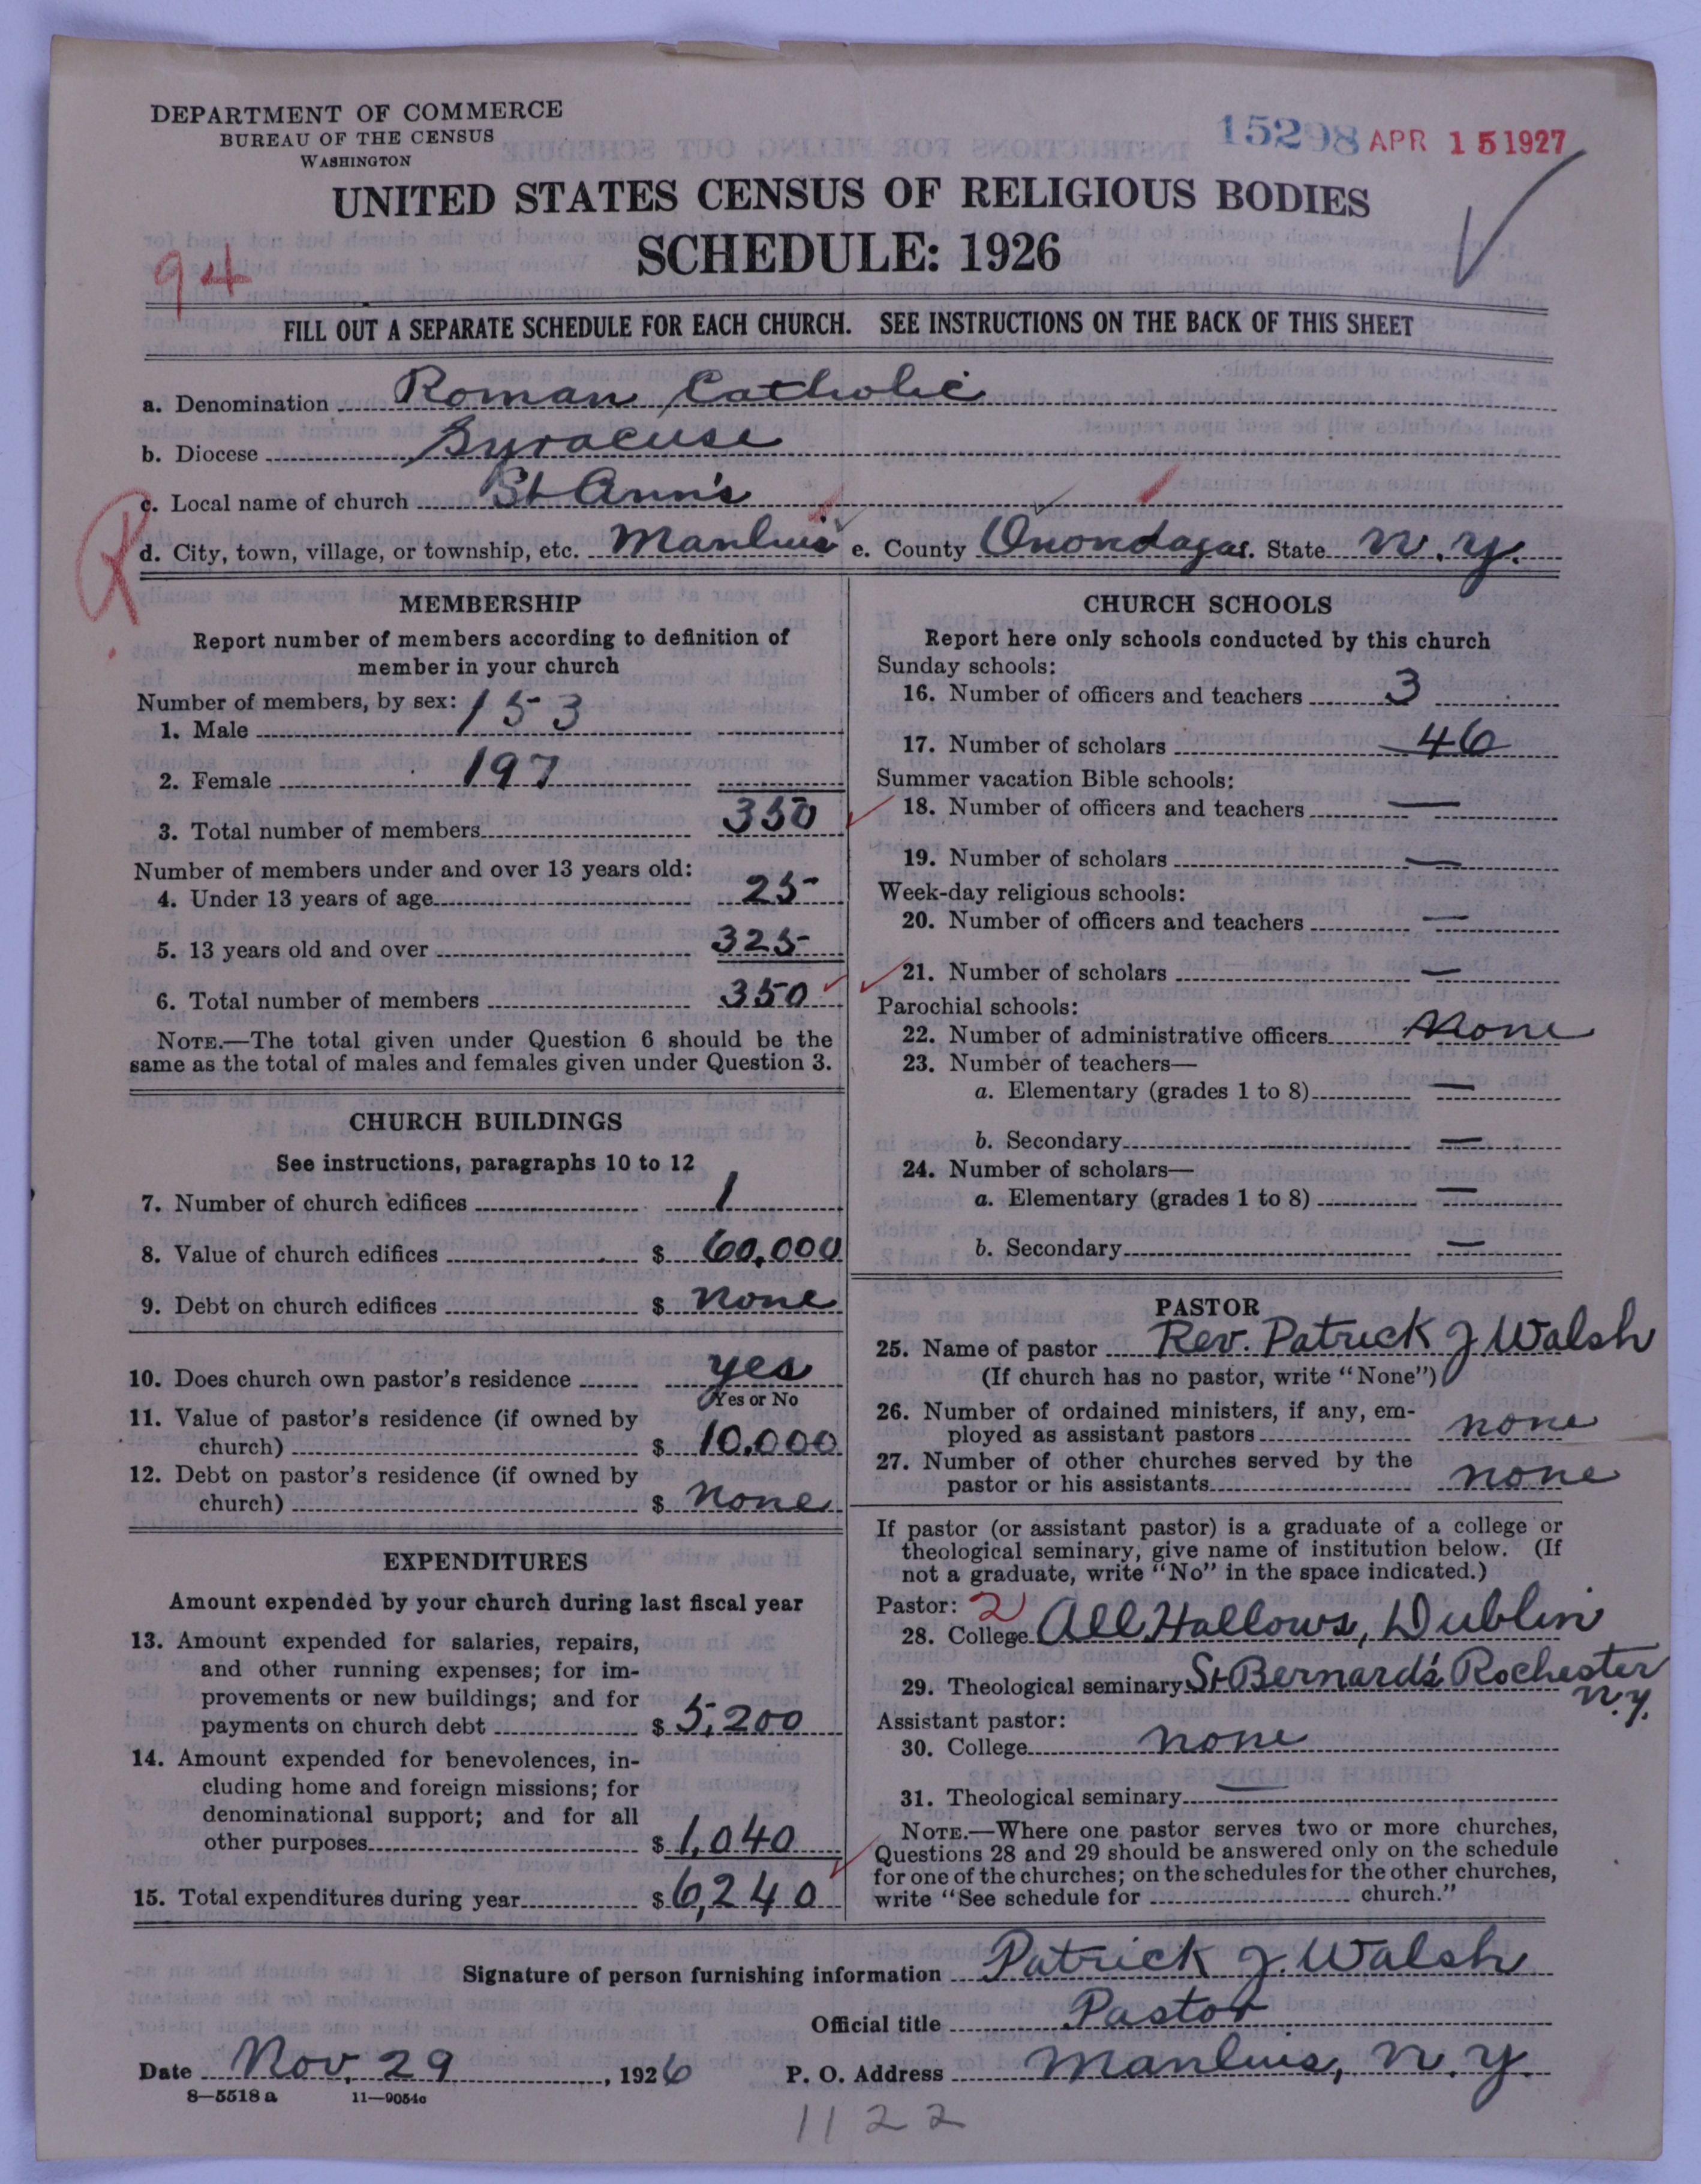 DEPARTMENT OF COMMERCE
BUREAU OF THE CENSUS
WASHINGTON
15298 APR 15 1927
UNITED STATES CENSUS OF RELIGIOUS BODIES
SCHEDULE: 1926
94
FILL OUT A SEPARATE SCHEDULE FOR EACH CHURCH. SEE INSTRUCTIONS ON THE BACK OF THIS SHEET
a. Denomination Roman Catholic
b. Diocese Syracuse
c. Local name of church St Ann's
d. City, town, village, or township, etc. Manlius e. County Onondaga. State N.Y.
R
MEMBERSHIP
Report number of members according to definition of
member in your church
Number of members, by sex:
1. Male 153
2. Female 197
3. Total number of members 350
Number of members under and over 13 years old:
4. Under 13 years of age 25
5. 13 years old and over 325
6. Total number of members 350
NOTE.—The total given under Question 6 should be the
same as the total of males and females given under Question 3.
CHURCH BUILDINGS
See instructions, paragraphs 10 to 12
7. Number of church edifices 1
8. Value of church edifices $ 60,000
9. Debt on church edifices $ none
10. Does church own pastor's residence yes
Yes or No
11. Value of pastor's residence (if owned by
church) $ 10,000
12. Debt on pastor's residence (if owned by
church) $ none
EXPENDITURES
Amount expended by your church during last fiscal year
13. Amount expended for salaries, repairs,
and other running expenses; for im-
provements or new buildings; and for
payments on church debt $ 5,200
14. Amount expended for benevolences, in-
cluding home and foreign missions; for
denominational support; and for all
other purposes $ 1,040
15. Total expenditures during year $ 6,240
CHURCH SCHOOLS
Report here only schools conducted by this church
Sunday schools:
16. Number of officers and teachers 3
17. Number of scholars 46
Summer vacation Bible schools:
18. Number of officers and teachers —
19. Number of scholars —
Week-day religious schools:
20. Number of officers and teachers —
21. Number of scholars —
Parochial schools:
22. Number of administrative officers None
23. Number of teachers—
a. Elementary (grades 1 to 8) —
b. Secondary —
24. Number of scholars—
a. Elementary (grades 1 to 8) —
b. Secondary —
PASTOR
25. Name of pastor Rev. Patrick J Walsh
(If church has no pastor, write "None")
26. Number of ordained ministers, if any, em-
ployed as assistant pastors none
27. Number of other churches served by the
pastor or his assistants none
If pastor (or assistant pastor) is a graduate of a college or
theological seminary, give name of institution below. (If
not a graduate, write "No" in the space indicated.)
Pastor: 2
28. College All Hallows, Dublin
29. Theological seminary St Bernard's Rochester
N.Y.
Assistant pastor:
30. College none
31. Theological seminary —
NOTE.—Where one pastor serves two or more churches,
Questions 28 and 29 should be answered only on the schedule
for one of the churches; on the schedules for the other churches,
write "See schedule for church."
Signature of person furnishing information Patrick J. Walsh
Official title Pastor
Date Nov. 29, 1926 P. O. Address Manlius, N.Y.
8—5518 a 11—9054c
1122